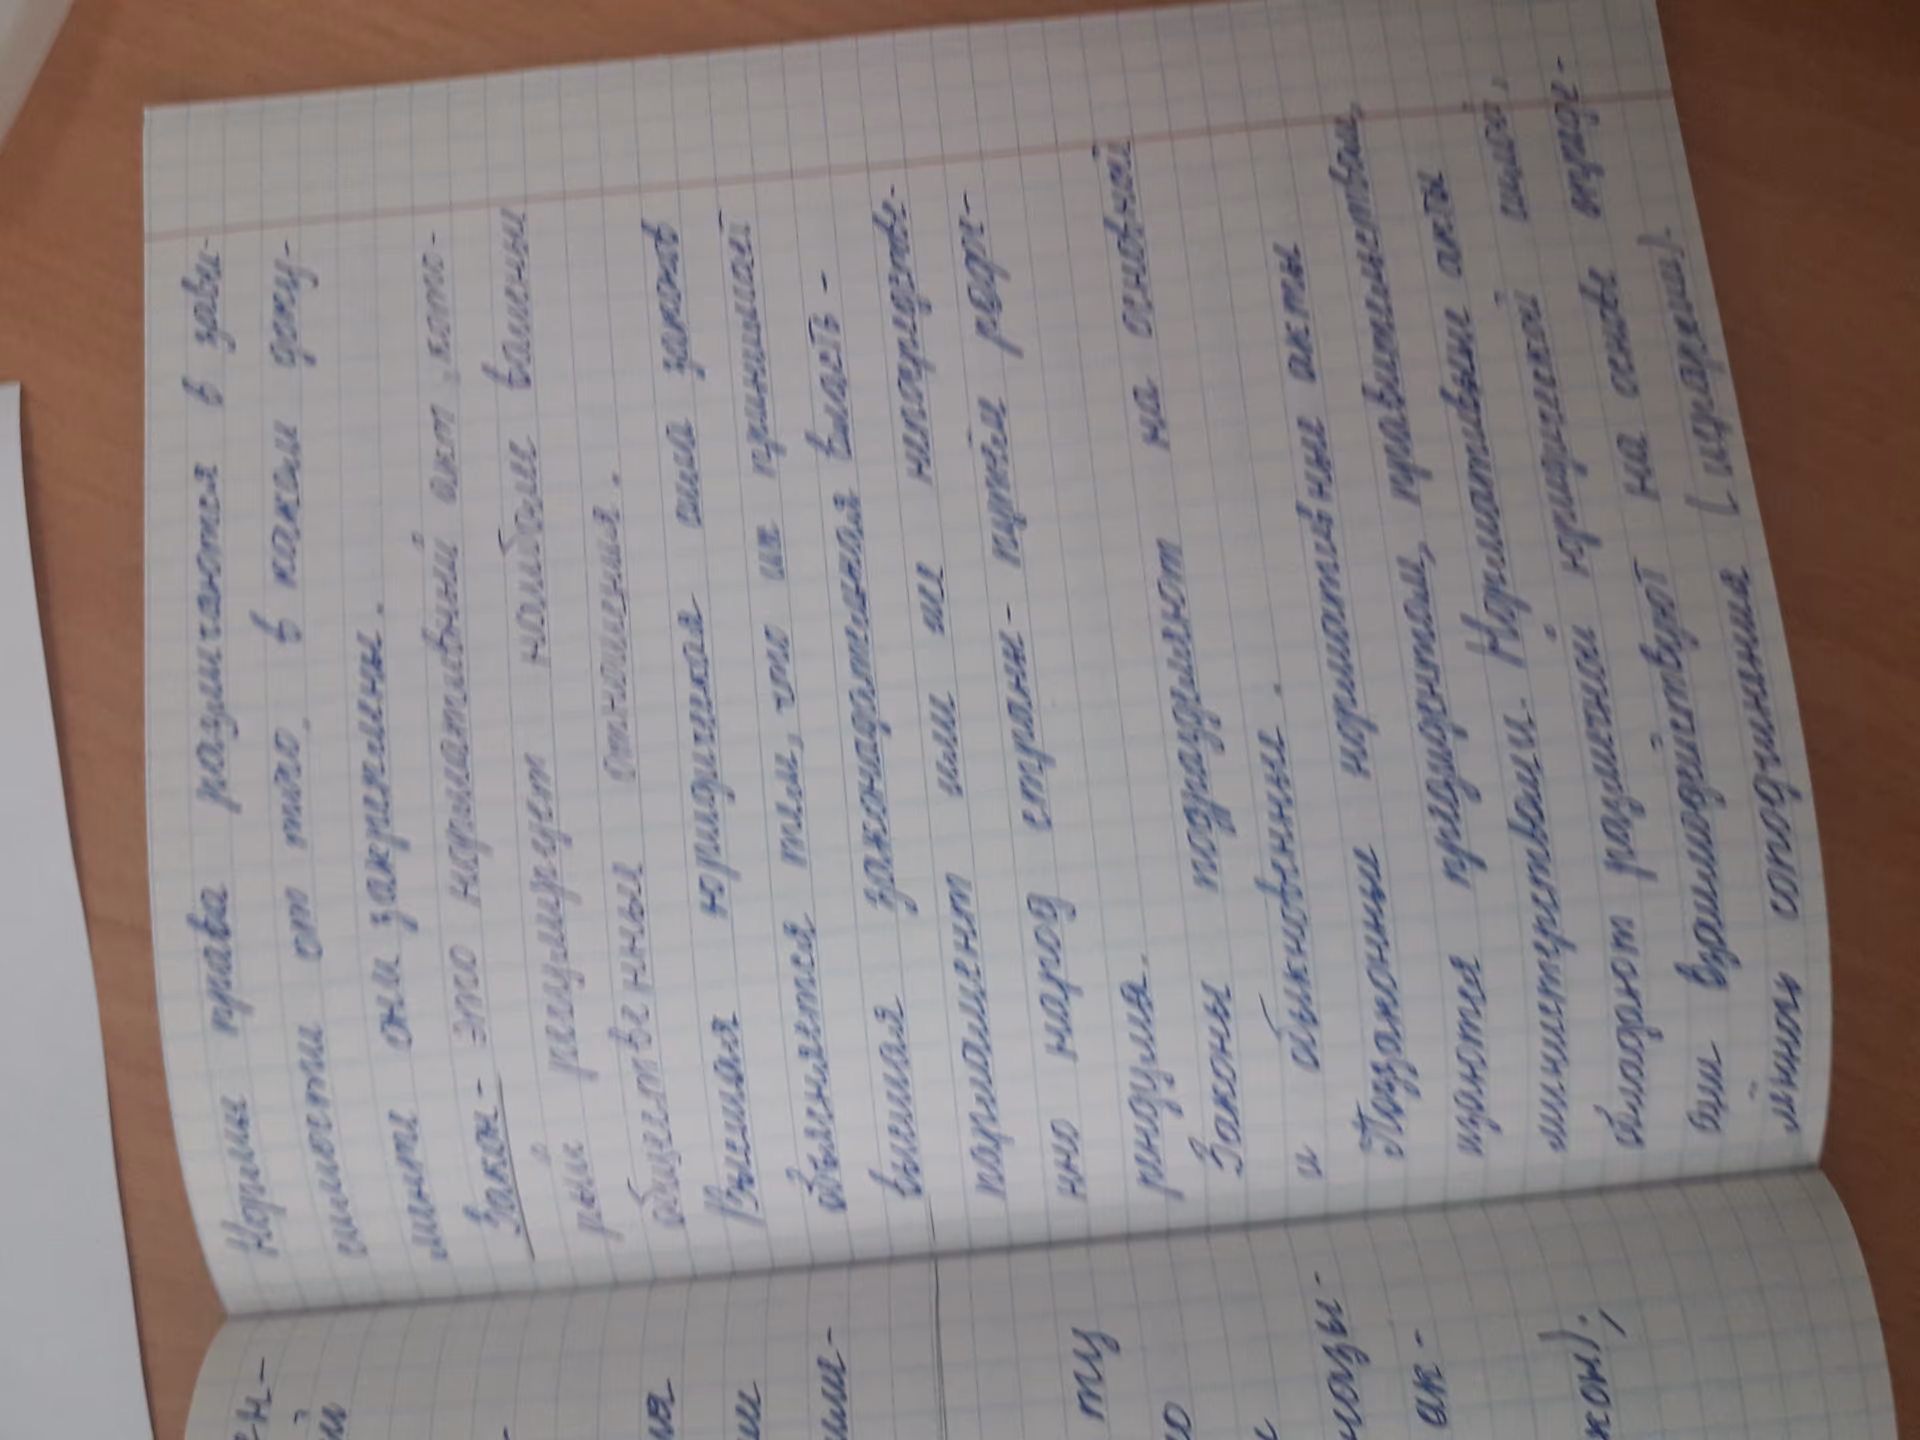 ен-
ой
-
ия
ии
или-
ту
о
и
назы-
ак-
кон);
Нормы права различаются в зави-
симости от того, в каком доку-
менте они закреплены.
Закон - это нормативный акт, кото-
рый регулирует наиболее важные
общественные отношения.
Высшая юридическая сила законов
объясняется тем, что их принимает
высшая законодательная власть -
парламент или же непосредстве-
нно народ страны - путём рефе-
рендума.
Законы подразделяют на основной
и обыкновенные.
Подзаконные нормативные акты
издаются президентом, правительством,
министерствами. Нормативные акты
обладают различной юридической силой,
они взаимодействуют на основе опреде-
лённого соподчинения (иерархии).